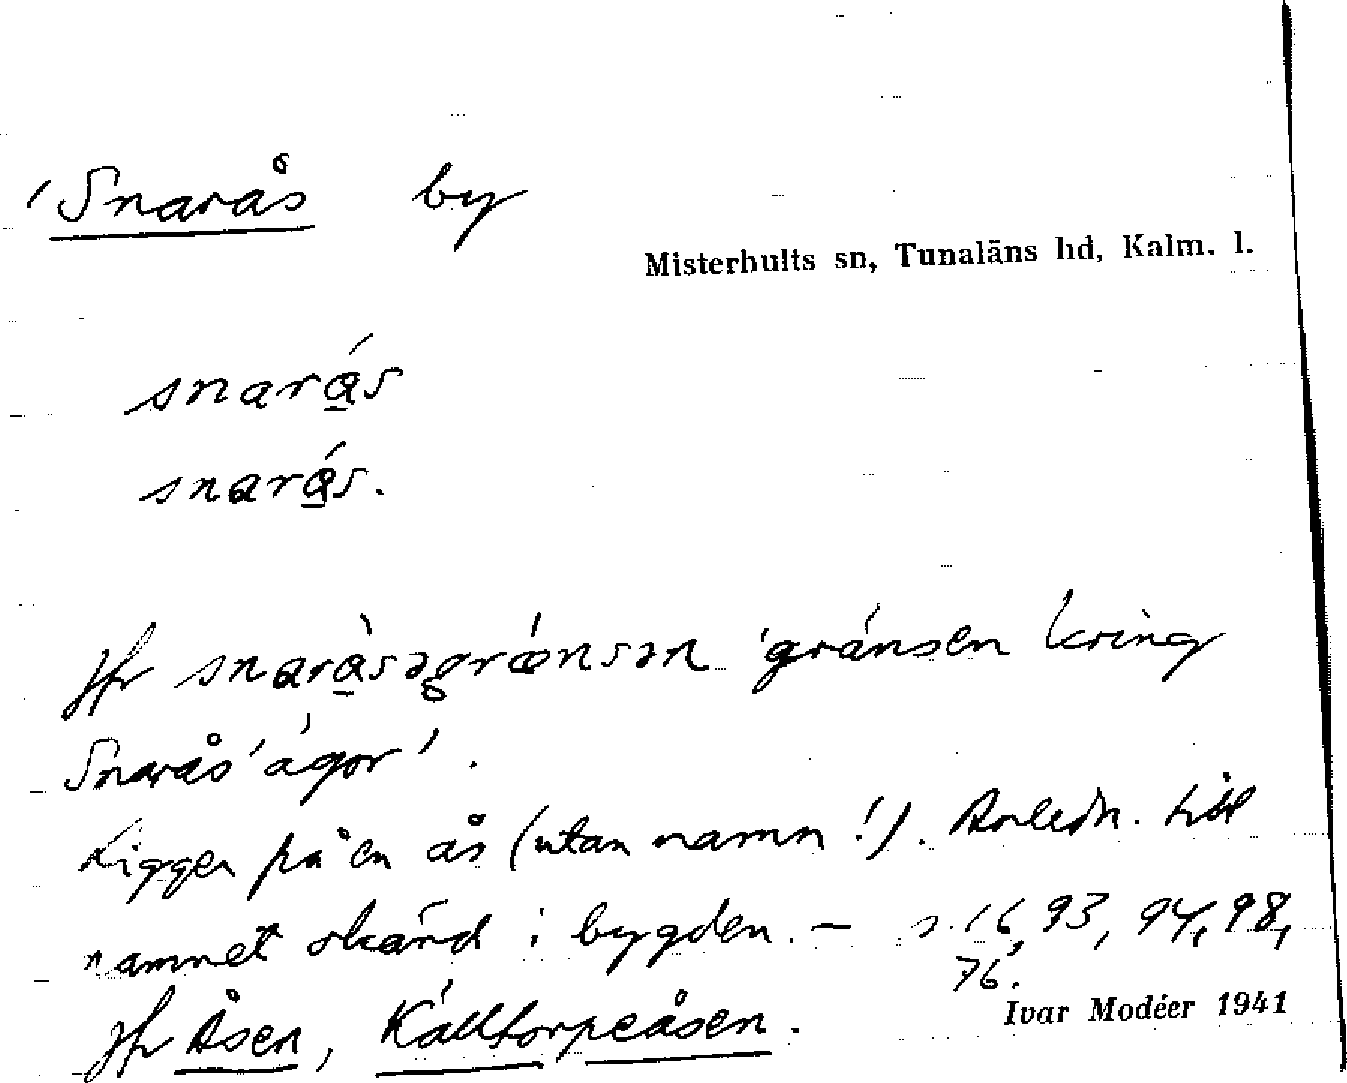 Snarås by
Misterhults sn, Tunaläns hd, Kalm. l.
snarás
snarás.
Jfr snaràsəgrǽnsən 'gränsen kring
Snarås' ägor'.
Ligger på en ås (utan namn!). Anledn. till
namnet okänd i bygden. – s. 16, 93, 94, 98,
76.
Jfr Åsen, Källtorpeåsen.
Ivar Modéer 1941